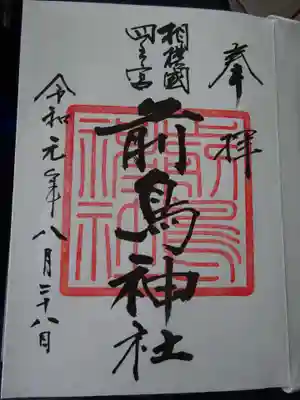 奉拝
相模國
四之宮
前鳥神社
令和元年八月二十八日
前鳥神社